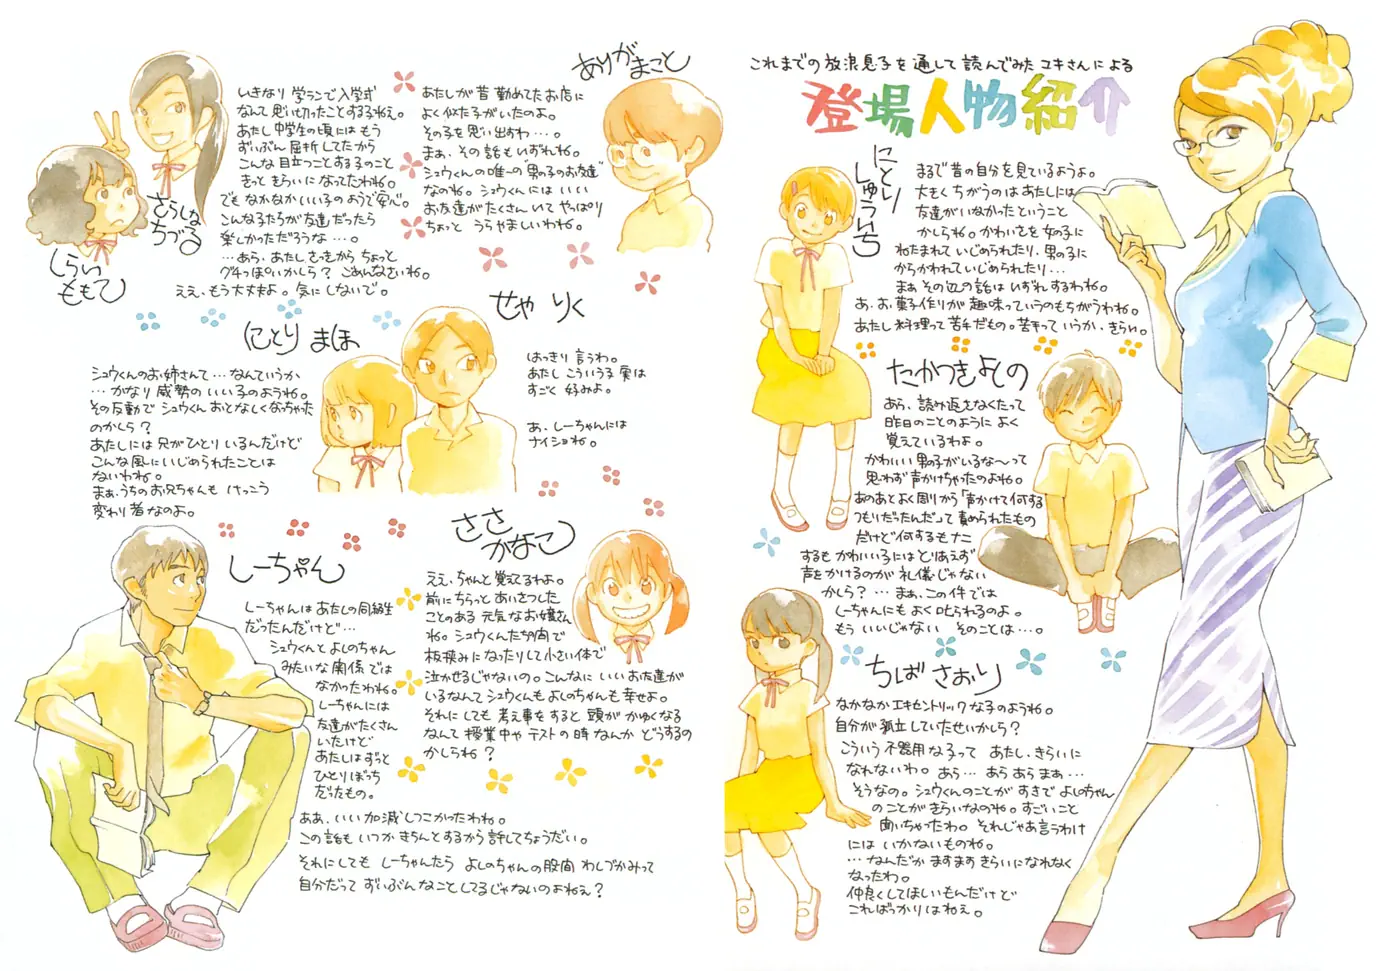 これまでの放浪息子を通して読んでみたユキさんによる
登場人物紹介
にとり
しゅういち
まるで昔の自分を見ているようよ。
大きくちがうのはあたしには
友達がいなかったということ
かしらね。かわいさを女の子に
ねたまれていじめられたり、男の子に
からかわれていじめられたり…
まぁその辺の話はいずれするわね。
あ、お菓子作りが趣味っていうのもちがうわね。
あたし料理って苦手だもの。苦手っていうか、きらい。
たかつきよしの
あら、読み返さなくたって
昨日のことのようによく
覚えているわよ。
かわいい男の子がいるな〜って
思わず声かけちゃったのよね。
あのあとよく周りから「声かけて何する
つもりだったんだ」って責められたもの
だけど何するもナニ
するもかわいい子にはとりあえず
声をかけるのが礼儀じゃない
かしら?…まぁ、この件では
しーちゃんにもよく叱られるのよ。
もういいじゃない そのことは…。
ちばさおり
なかなかエキセントリックな子のようね。
自分が孤立していたせいかしら?
こういう不器用な子って あたし、きらいに
なれないわ。あら…あらあらまぁ…
そうなの。シュウくんのことがすきでよしのちゃん
のことがきらいなのね。すごいこと
聞いちゃったわ。それじゃあ言うわけ
にはいかないものね。
…なんだかますますきらいになれなく
なったわ。
仲良くしてほしいもんだけど
こればっかりはねぇ。
さらしな
ちづる
しらい
ももこ
いきなり学ランで入学式
なんて思い切ったことするわねぇ。
あたし中学生の頃にはもう
ずいぶん屈折してたから
こんな目立つことする子のこと
きっときらいになってたわね。
でもなかなかいい子のようで安心。
こんな子たちが友達だったら
楽しかっただろうな…。
…あら、あたしさっきからちょっと
グチっぽいかしら?ごめんなさいね。
ええ、もう大丈夫よ。気にしないで。
ありが まこと
あたしが昔勤めてたお店に
よく似た子がいたのよ。
その子を思い出すわ…。
まぁ、その話もいずれね。
シュウくんの唯一の“男の子のお友達”
なのね。シュウくんにはいい
お友達がたくさんいてやっぱり
ちょっと うらやましいわね。
にとり まほ
シュウくんのお姉さんて…なんていうか
…かなり威勢のいい子のようね。
その反動でシュウくんおとなしくなっちゃった
のかしら?
あたしには兄がひとりいるんだけど
こんな風にいじめられたことは
ないわね。
まぁ、うちのお兄ちゃんも けっこう
変わり者なのよ。
せや りく
はっきり言うわ。
あたしこういう子実は
すごく好みよ。
あ、しーちゃんには
ナイショね。
しーちゃん
しーちゃんはあたしの同級生
だったんだけど…
シュウくんとよしのちゃん
みたいな関係では
なかったわね。
しーちゃんには
友達がたくさん
いたけど
あたしはずっと
ひとりぼっち
だったもの。
ああ、いい加減しつこかったわね。
この話もいつかきちんとするから許してちょうだい。
それにしても しーちゃんたら よしのちゃんの股間わしづかみって
自分だって ずいぶんなことしてるじゃないのよねぇ?
ささ
かなこ
ええ、ちゃんと覚えてるわよ。
前にちらっとあいさつした
ことのある元気なお嬢さん
ね。シュウくんたちの間で
板挟みになったりして小さい体で
泣かせるじゃないの。こんなにいいお友達が
いるなんてシュウくんもよしのちゃんも幸せよ。
それにしても考え事をすると頭がかゆくなる
なんて授業中やテストの時なんかどうするの
かしらね?